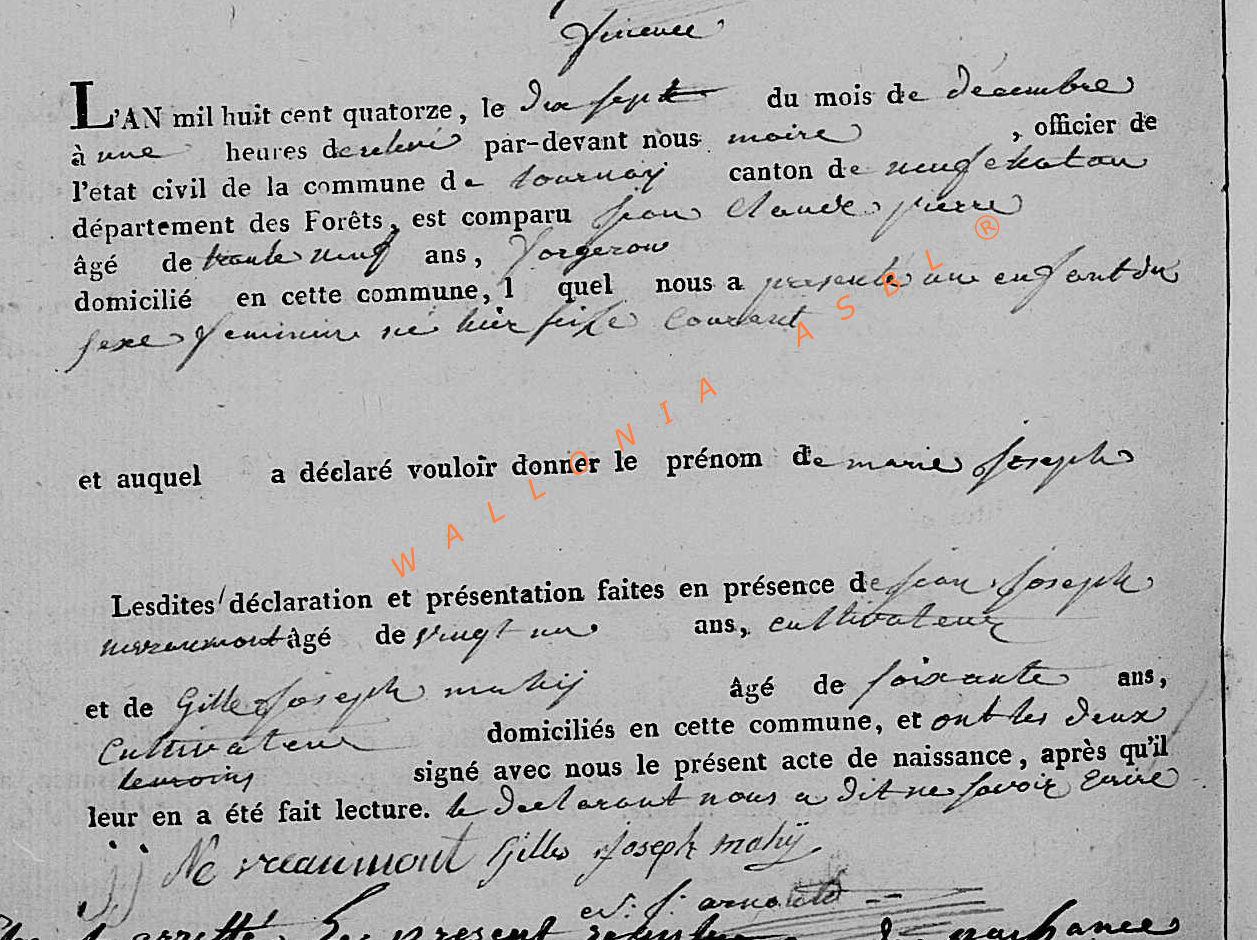 L'AN mil huit cent quatorze, le dix sept du mois de décembre
à une heures de relevé par-devant nous maire , officier de
l'etat civil de la commune de tournay canton de neufchatau
département des Forêts, est comparu jean Claude pierre
âgé de trante neuf ans, forgeron
domicilié en cette commune, l quel nous a presenté une enfant du
sexe feminin né hier seize courant
et auquel a déclaré vouloir donner le prénom de marie joseph
WALLONIA ASBL ®
Lesdites déclaration et présentation faites en présence de jean joseph
âgé de vingt un ans, cultivateur
et de Gille joseph mahij âgé de soixante ans,
Cultivateur domiciliés en cette commune, et ont les deux
temoins signé avec nous le présent acte de naissance, après qu'il
leur en a été fait lecture. le declarant nous a dit ne savoir ecrire
Gilles joseph mahij
present